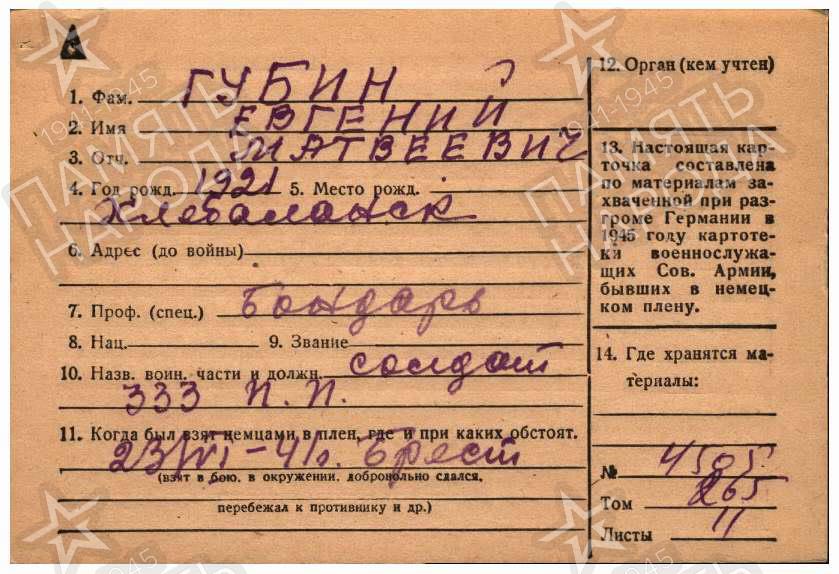 А
1. Фам. ГУБИН
2. Имя ЕВГЕНИЙ
3. Отч. МАТВЕЕВИЧ
4. Год рожд. 1921 5. Место рожд.
Хлебаланск
6. Адрес (до войны)
7. Проф. (спец.) Бондарь
8. Нац. 9. Звание
10. Назв. воин. части и должн. солдат
333 п.п.
11. Когда был взят немцами в плен, где и при каких обстоят.
23/VI-41г. Брест
(взят в бою, в окружении, добровольно сдался,
перебежал к противнику и др.)
12. Орган (кем учтен)
13. Настоящая кар-
точка составлена
по материалам за-
хваченной при раз-
громе Германии в
1945 году картоте-
ки военнослужа-
щих Сов. Армии,
бывших в немец-
ком плену.
14. Где хранятся ма-
териалы:
№ 4505
Том 265
Листы 11
ПАМЯТЬ НАРОДА
1941-1945